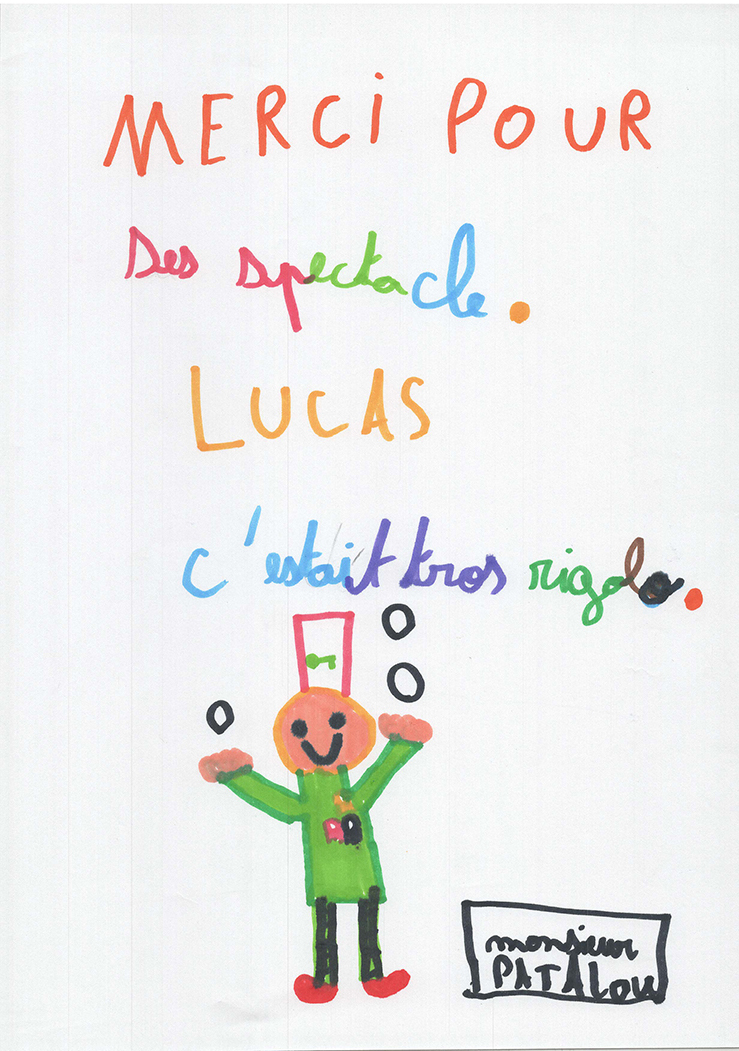 MERCi POUR
Des spectacle.
LUCAS
c'estait tros rigolo.
monsieur
PATALOU